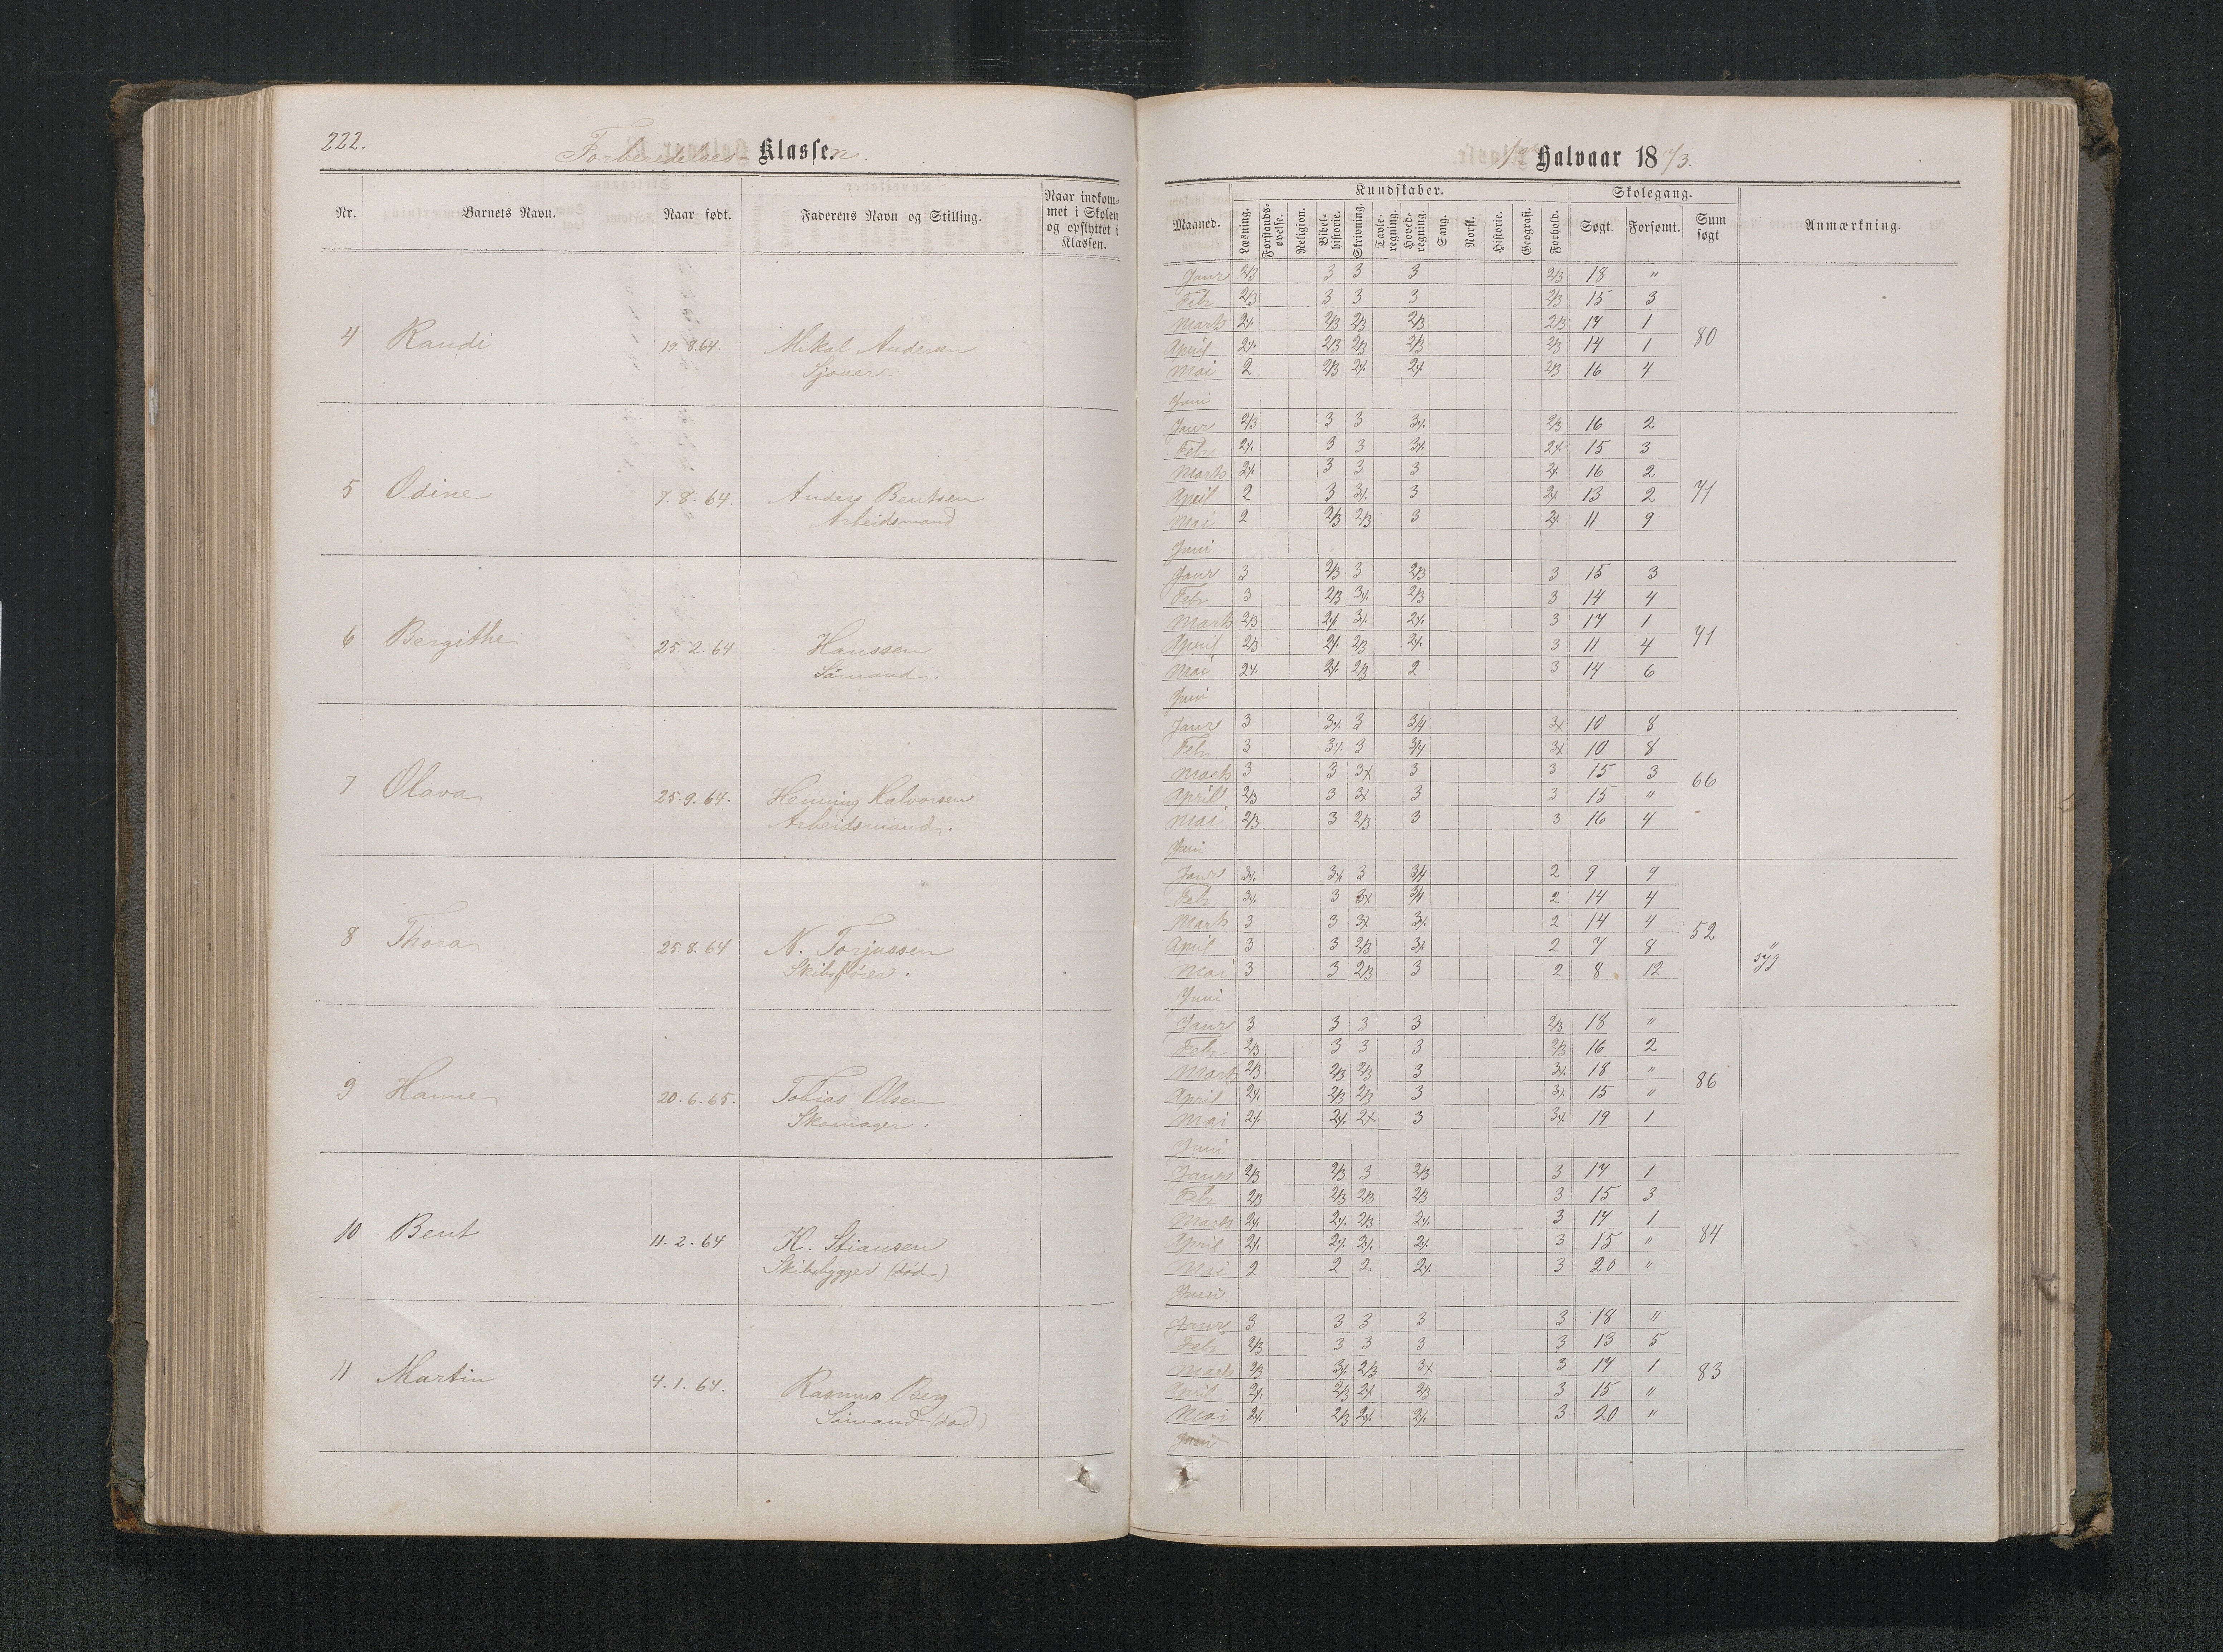 222.
Forberedelses- Klassen.
Nr. Barnets Navn. Naar født. Faderens Navn og Stilling. Naar indkom-
met i Skolen
og opflyttet i
Klassen.
4 Randi 19.8.64. Mikal Andersen
Sjouer.
5 Odine 7.8.64. Anders Bentsen
Arbeidsmand
6 Bergithe 25.2.64. Hanssen
Sømand.
7 Olava 25.9.64. Henning Halvorsen
Arbeidsmand.
8 Thora 25.8.64 N. Torjussen
Skibsfører.
9 Hanne 20.6.65. Tobias Olsen
Skomager.
10 Bent 11.2.64 K. Stiansen
Skibsbygger (død)
11 Martin 4.1.64. Rasmus Berg
Sømand (død)
1ste Halvaar 1873.
Kundskaber. Skolegang.
Maaned. Læsning. Forstands-
øvelse. Religion. Bibel-
historie. Skrivning. Tavle-
regning. Hoved-
regning. Sang. Norsk. Historie. Geografi. Forhold. Søgt. Forsømt. Sum
søgt Anmærkning.
Janr 2/3 3 3 3 2/3 18 "
Feb 2/3 3 3 3 2/3 15 3
Marts 2% 2/3 2/3 2/3 2/3 17 1 80
April 2% 2/3 2/3 2/3 2/3 14 1
Mai 2 2/3 2% 2% 2/3 16 4
Juni
Janr 2/3 3 3 3% 2/3 16 2
Feb 2% 3 3 3% 2% 15 3
Marts 2% 3 3 3 2% 16 2
April 2 3 3% 3 2% 13 2 71
Mai 2 2/3 2/3 3 2% 11 9
Juni
Janr 3 2/3 3 2/3 3 15 3
Feb 3 2/3 3% 2/3 3 14 4
Marts 2/3 2% 3% 2% 3 17 1 71
April 2/3 2% 2/3 2% 3 11 4
Mai 2% 2% 2/3 2 3 14 6
Juni
Janr 3 3% 3 3/4 3x 10 8
Feb 3 3% 3 3/4 3x 10 8
Marts 3 3 3x 3 3 15 3 66
April 2/3 3 3x 3 3 15 "
Mai 2/3 3 2/3 3 3 16 4
Juni
Janr 3% 3% 3 3/4 2 9 9
Feb 3% 3 3x 3/4 2 14 4
Marts 3 3 3x 3% 2 14 4 52
April 3 3 2/3 3% 2 7 8 "
Mai 3 3 2/3 3 2 8 12 syg
Juni
Janr 3 3 3 3 2/3 18 "
Feb 2/3 3 3 3 2/3 16 2
Marts 2/3 2/3 2/3 3 3% 18 " 86
April 2% 2/3 2/3 3 3% 15 "
Mai 2% 2% 2x 3 3% 19 1
Juni
Janr 2/3 2/3 3 2/3 3 17 1
Feb 2/3 2/3 2/3 2/3 3 15 3
Marts 2% 2% 2/3 2% 3 17 1 84
April 2% 2% 2% 2% 3 15 "
Mai 2 2 2 2% 3 20 "
Juni
Janr 3 3 3 3 3 18 "
Feb 2/3 3 3 3 3 13 5
Marts 2/3 3% 2/3 3x 3 17 1 83
April 2% 2/3 2x 2/3 3 15 "
Mai 2% 2/3 2% 2% 3 20 "
Juni